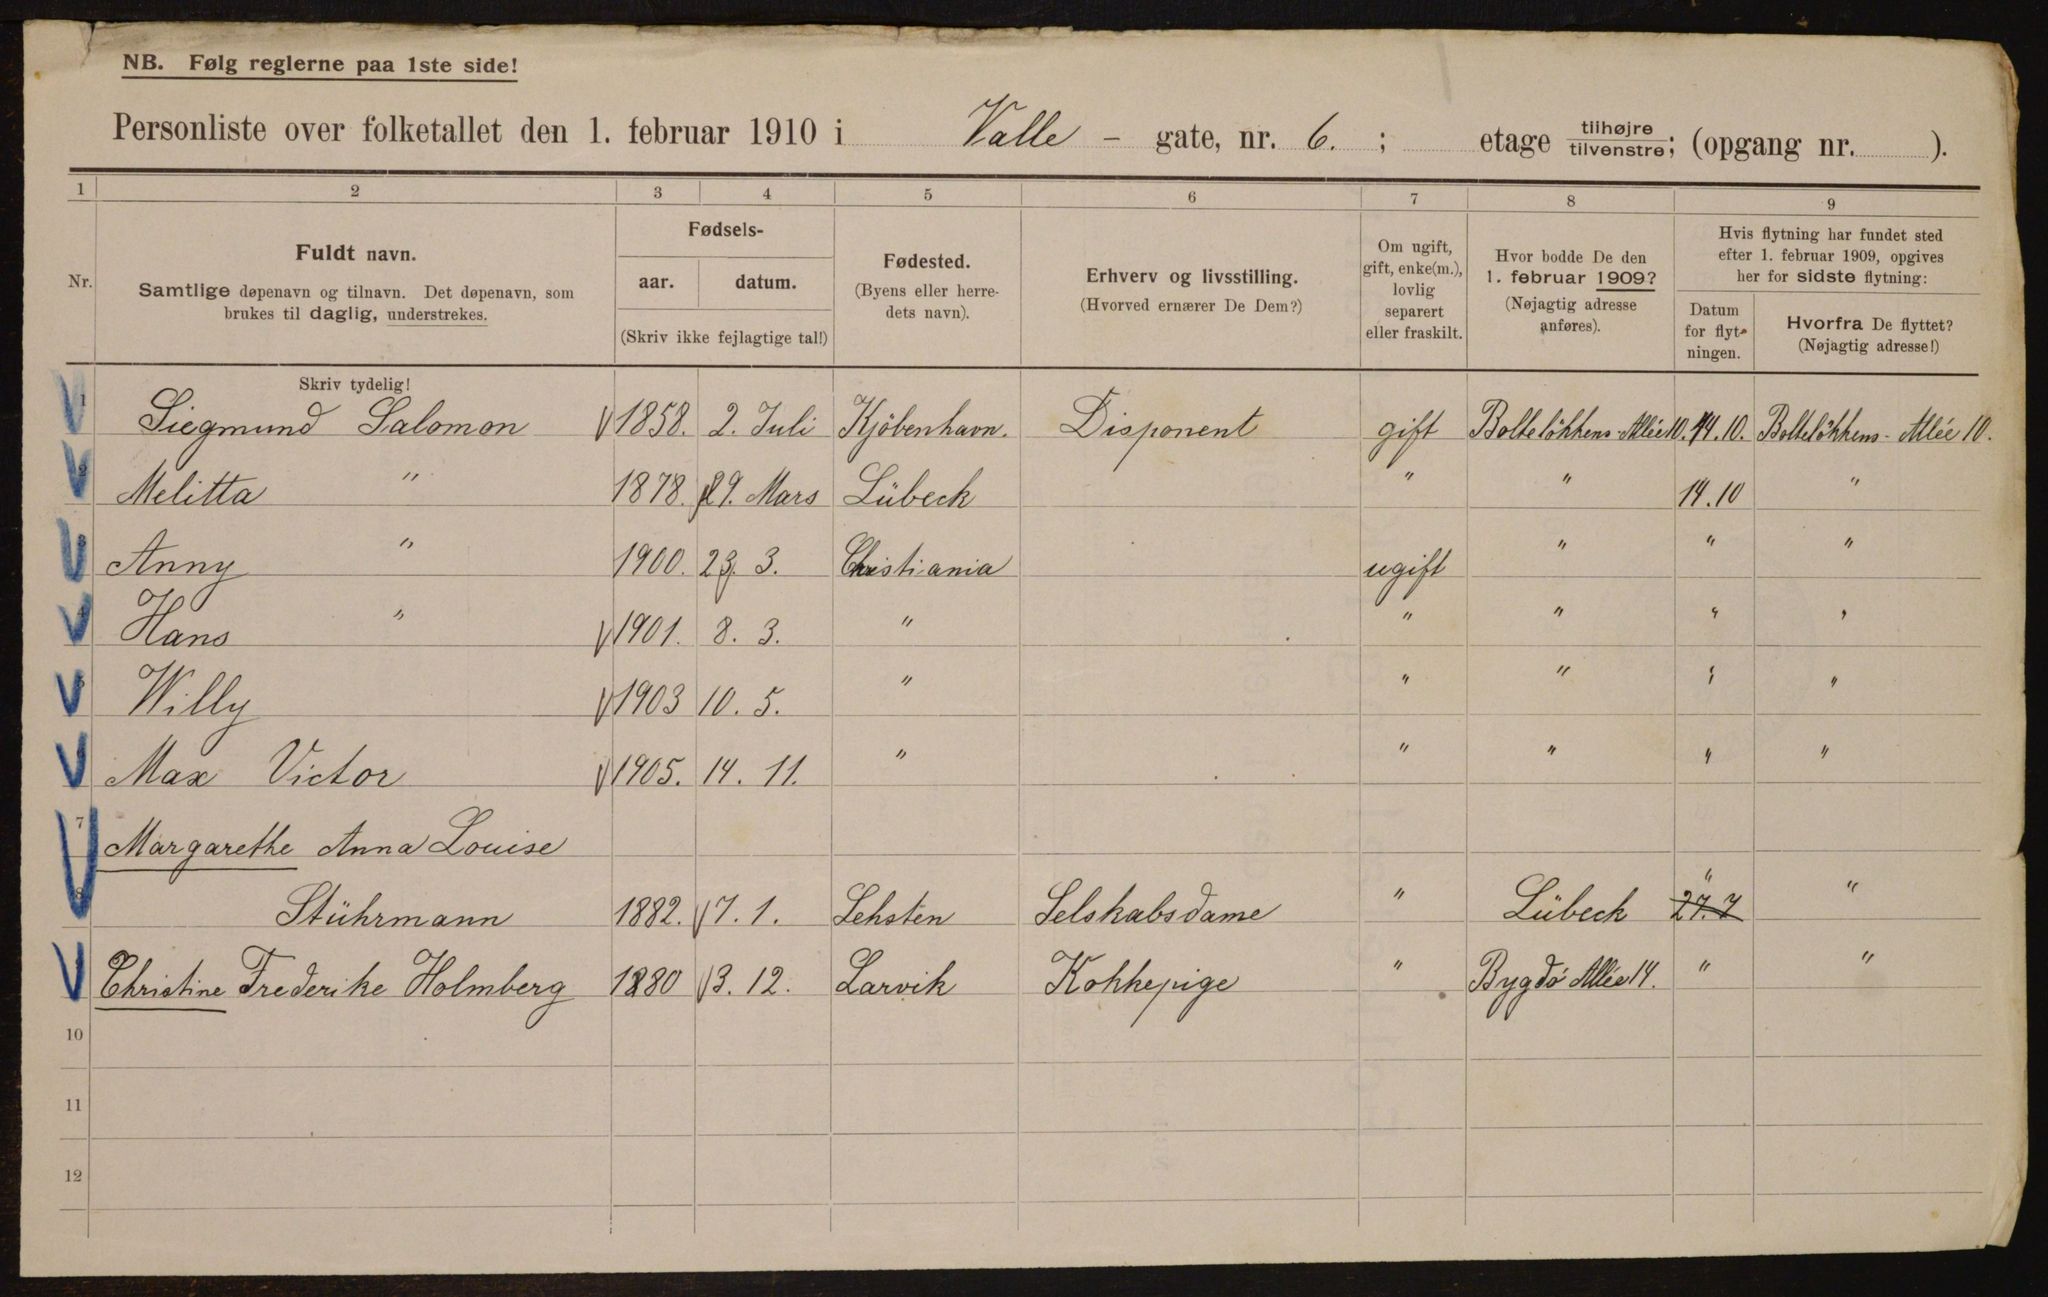 NB. Følg reglerne paa 1ste side!
Personliste over folketallet den 1. februar 1910 i Valle - gate, nr. 6. ; etage tilhøjre tilvenstre; (opgang nr. ).
1 2 3 4 5 6 7 8 9
Nr.
Fuldt navn.
Samtlige døpenavn og tilnavn. Det døpenavn, som
brukes til daglig, understrekes.
Skriv tydelig!
Fødsels-
aar. datum.
(Skriv ikke fejlagtige tal!)
Fødested.
(Byens eller herre-
dets navn).
Erhverv og livsstilling.
(Hvorved ernærer De Dem?)
Om ugift,
gift, enke(m.),
lovlig
separert
eller fraskilt.
Hvor bodde De den
1. februar 1909?
(Nøjagtig adresse
anføres).
Hvis flytning har fundet sted
efter 1. februar 1909, opgives
her for sidste flytning:
Datum
for flyt-
ningen.
Hvorfra De flyttet?
(Nøjagtig adresse!)
1 Siegmund Salomon 1858. 2. Juli Kjöbenhavn. Disponent gift Bolteløkkens-Allée 10. 14.10. Bolteløkkens-Allée 10.
2 Melitta " 1878. 29. Mars Lübeck " " 14.10 "
3 Anny " 1900. 23. 3. Christiania ugift " " "
4 Hans " 1901. 8. 3. " " " " "
5 Willy 1903 10. 5. " " " " "
6 Max Victor 1905. 14. 11. " " " " "
7 Margarethe Anna Louise
8 Stührmann 1882. 7. 1. Lehsten Selskabsdame " Lübeck 27.7 " "
9 Christine Frederike Holmberg 1880 3. 12. Larvik Kokkepige " Bygdö Allée 14. " "
10
11
12